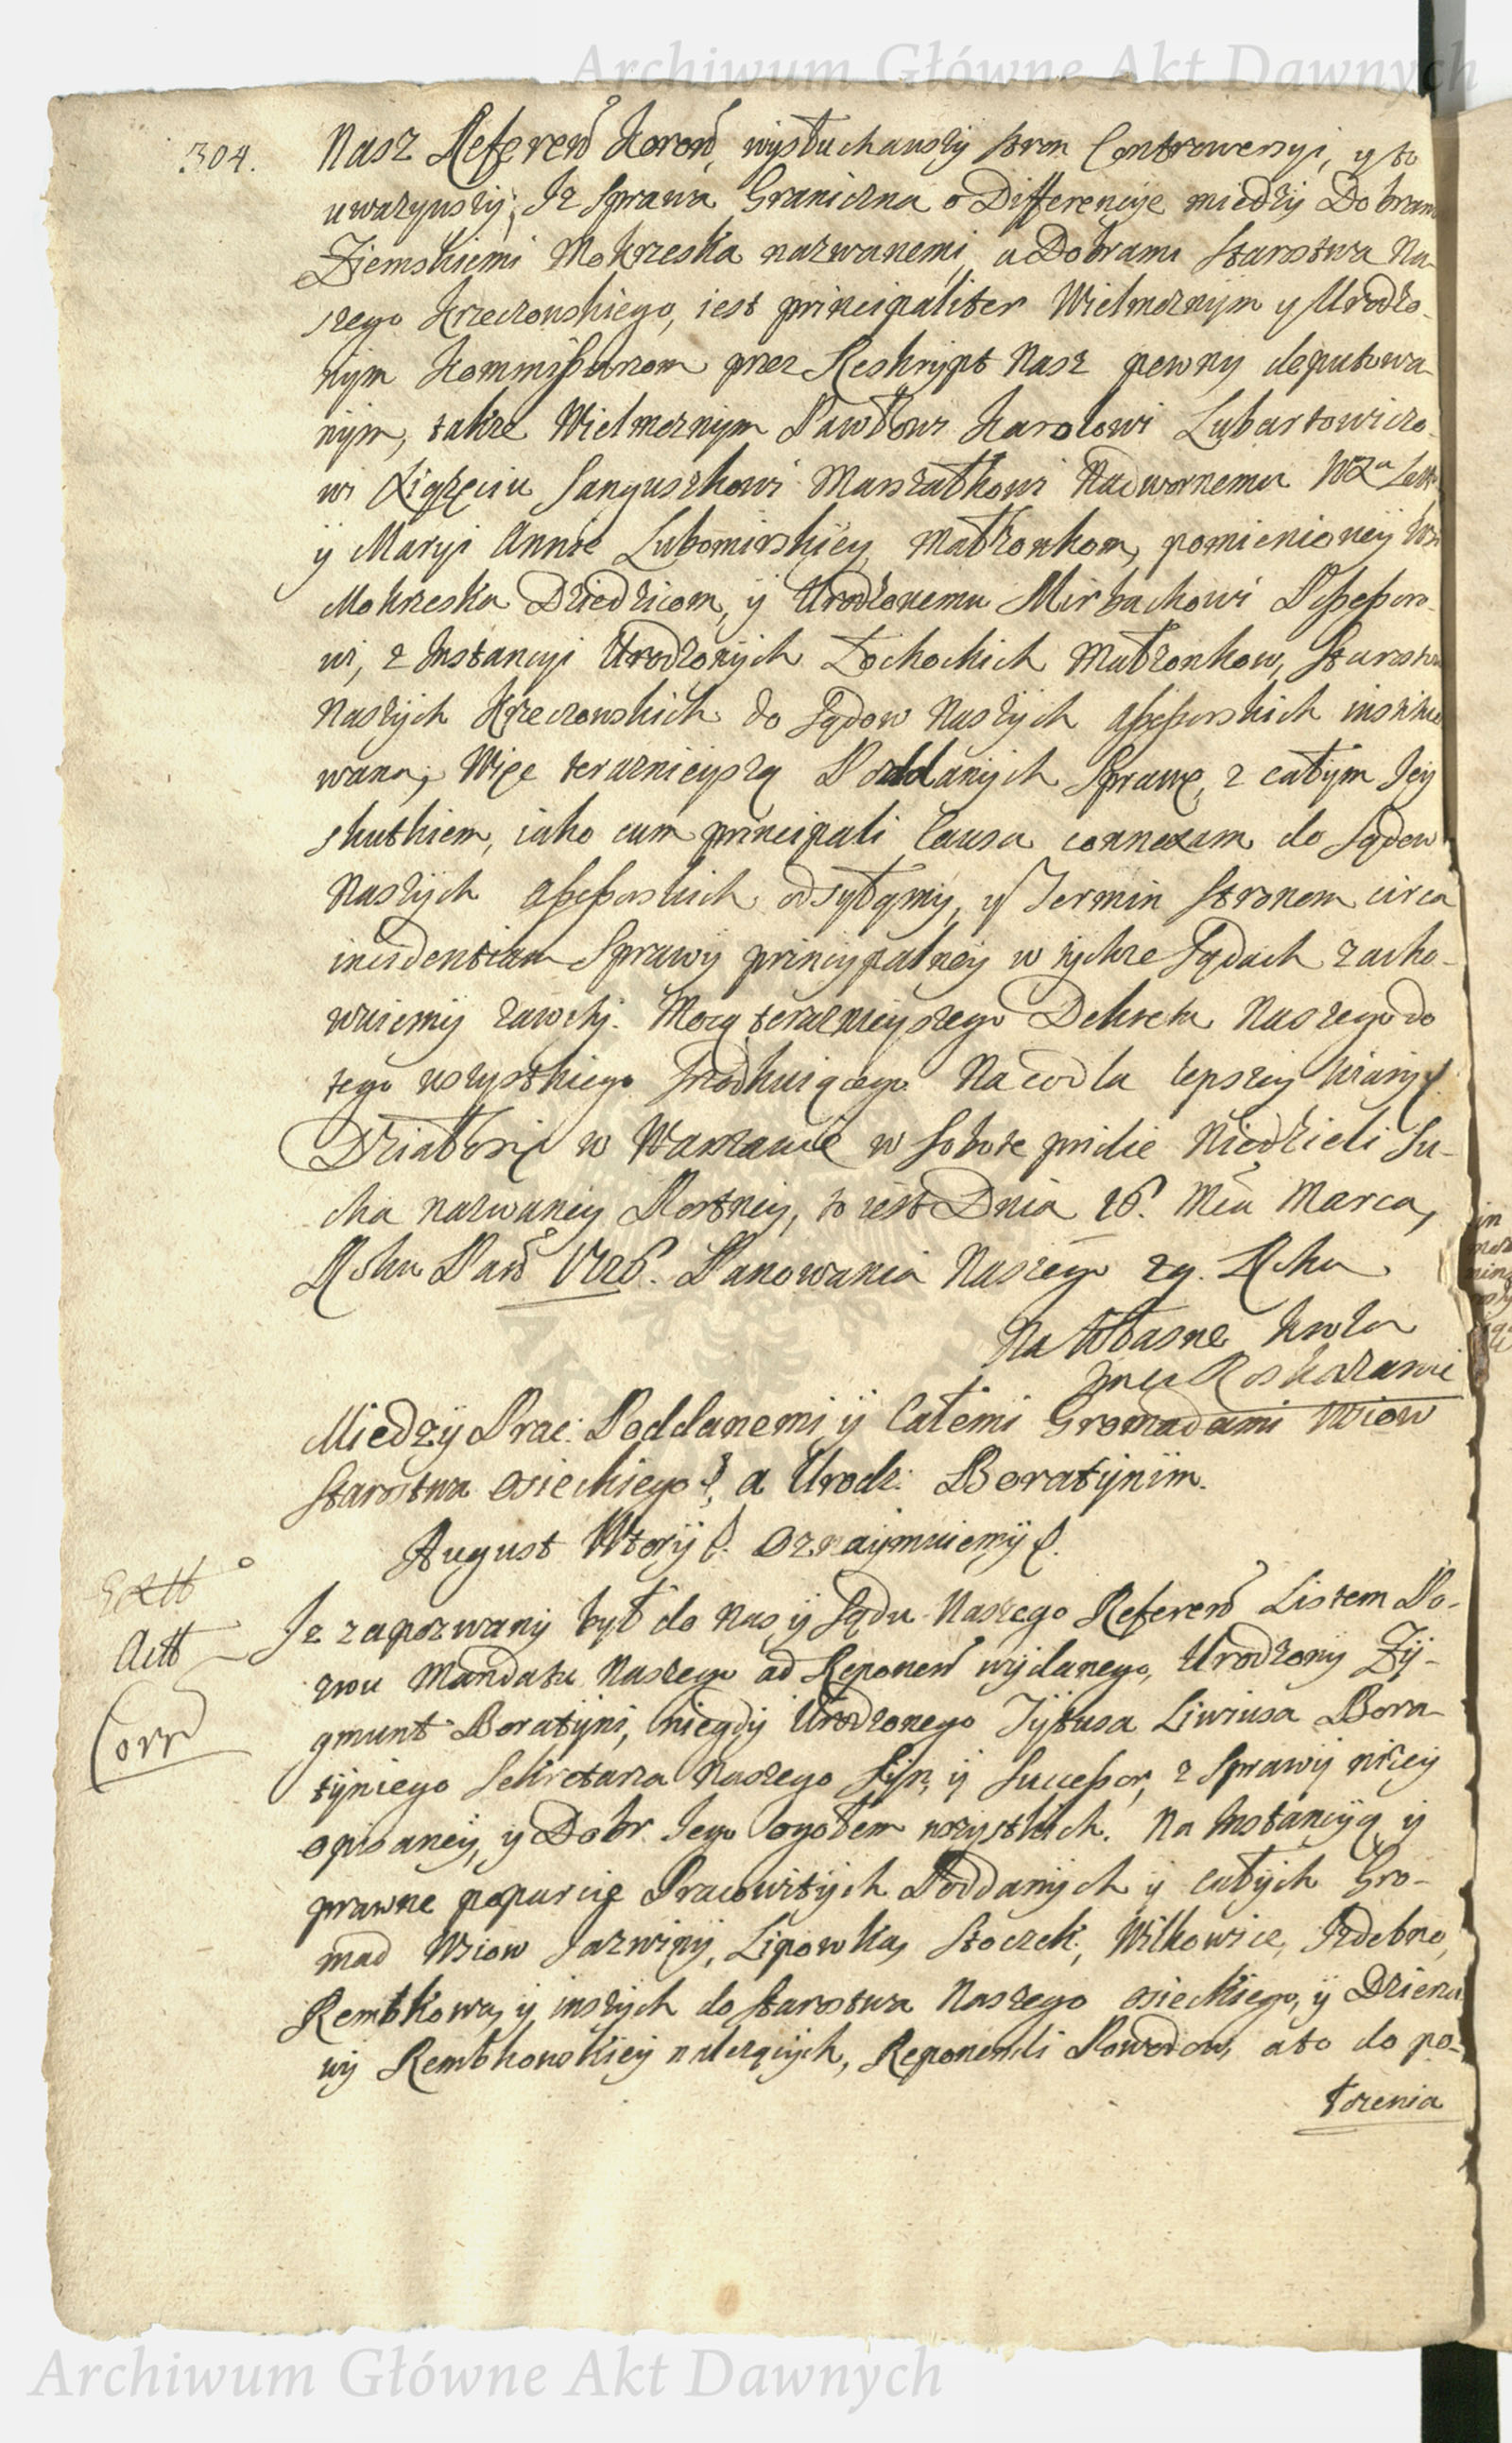 Archiwum Główne Akt Dawnych
304.
Nasz Referen Koron, wysłuchawszy stron Controwersyi, y to
uwazywszy, Iz Sprawa Graniczna o Differencye miedzy Dobrami
Ziemskiemi Mokrzeska nazwanemi, a Dobrami Starostwa Na-
szego Krzeczowskiego, iest principaliter Wielmoznym y Urodzo-
nym Kommissarzom przez Reskrypt Nasz pewny deputowa-
nym, takze Wielmoznym Pawłowi Karolowi Lubartowiczo-
wi Xiązęciu Sanguszkowi Marszałkowi Nadwornemu
y Maryi Annie Lubomirskiey Małzonkom, pomienioney Wsi
Mokrzeska Dziedzicom, y Urodzonemu Mirbachowi Possessoro-
wi, z Instancyi Urodzonych Łochockich Małzonkow, Starostow
Naszych Krzeczowskich do Sądow Naszych Assessorskich institu-
wana, Więc teraznieyszą Poddanych Sprawę, z całym Jey
skutkiem, iako cum principali Causa connexam do Sądow
Naszych Assessorskich odsyłamy, y Termin Stronom circa
incidentiam Sprawy principalney w tychze Sądach zacho-
wuiemy zawity. Mocą teraznieyszego Dekretu Naszego do
tego wszystkiego srzodkuiącego. Na co dla lepszey wiary
Działo się w Warszawie w Sobotę pridie Niedzieli Su-
cha nazwaney Postney, to iest Dnia 16. Mca Marca,
Roku Pan 1726. Panowania Naszego 29. Roku
Na Własne Krola
Jmci Roskazanie
Między Prac: Poddanemi y Całemi Gromadami Wsiow
Starostwa Osieckiego &, a Urodz: Boratynim.
August Wtory &. Oznaymuiemy &.
Extt
Actt
Corr
Iz zapozwany był do Nas y Sądu Naszego Referen Listem Po-
zwu Mandatu Naszego ad Reponen wydanego, Urodzony Zy-
gmunt Boratyni, niegdy Urodzonego Tytusa Liwiusa Bora-
tyniego Sekretarza Naszego Syn, y Successor, z Sprawy nizey
opisaney, y Dobr Jego ogołem wszystkich. Na Instancyą y
prawne poparcie Pracowitych Poddanych y całych Gro-
mad Wsiow Jazwiny, Lipowka, Stoczek, Wilkowice, Izdebno,
Rembkowa, y inszych do Starostwa Naszego Osieckiego, y Dzierza
wy Rembkowskiey nalezących, Reponendi Powodow, a to do po-
łozenia
Archiwum Główne Akt Dawnych